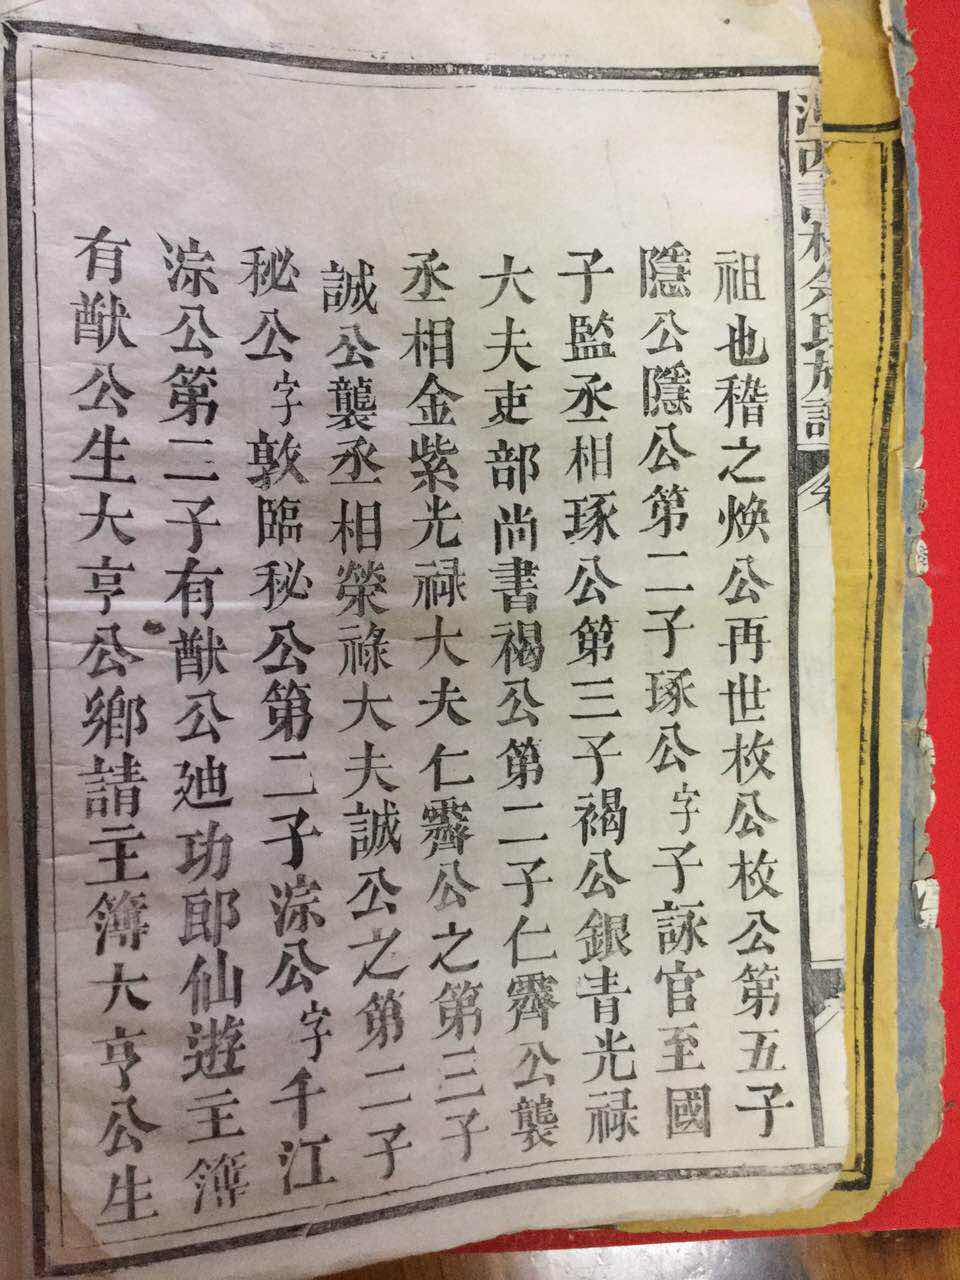 西書林余氏族譜
祖也稽之煥公再世枚公枚公第五子
隱公隱公第二子琢公字子詠官至國
子監丞相琢公第三子褐公銀青光禄
大夫吏部尚書褐公第二子仁霽公襲
丞相金紫光禄大夫仁霽公之第三子
誠公襲丞相榮祿大夫誠公之第二子
秘公字敦臨秘公第二子淙公字千江
淙公第二子有猷公廸功郎仙遊主簿
有猷公生大亨公鄉請主簿大亨公生